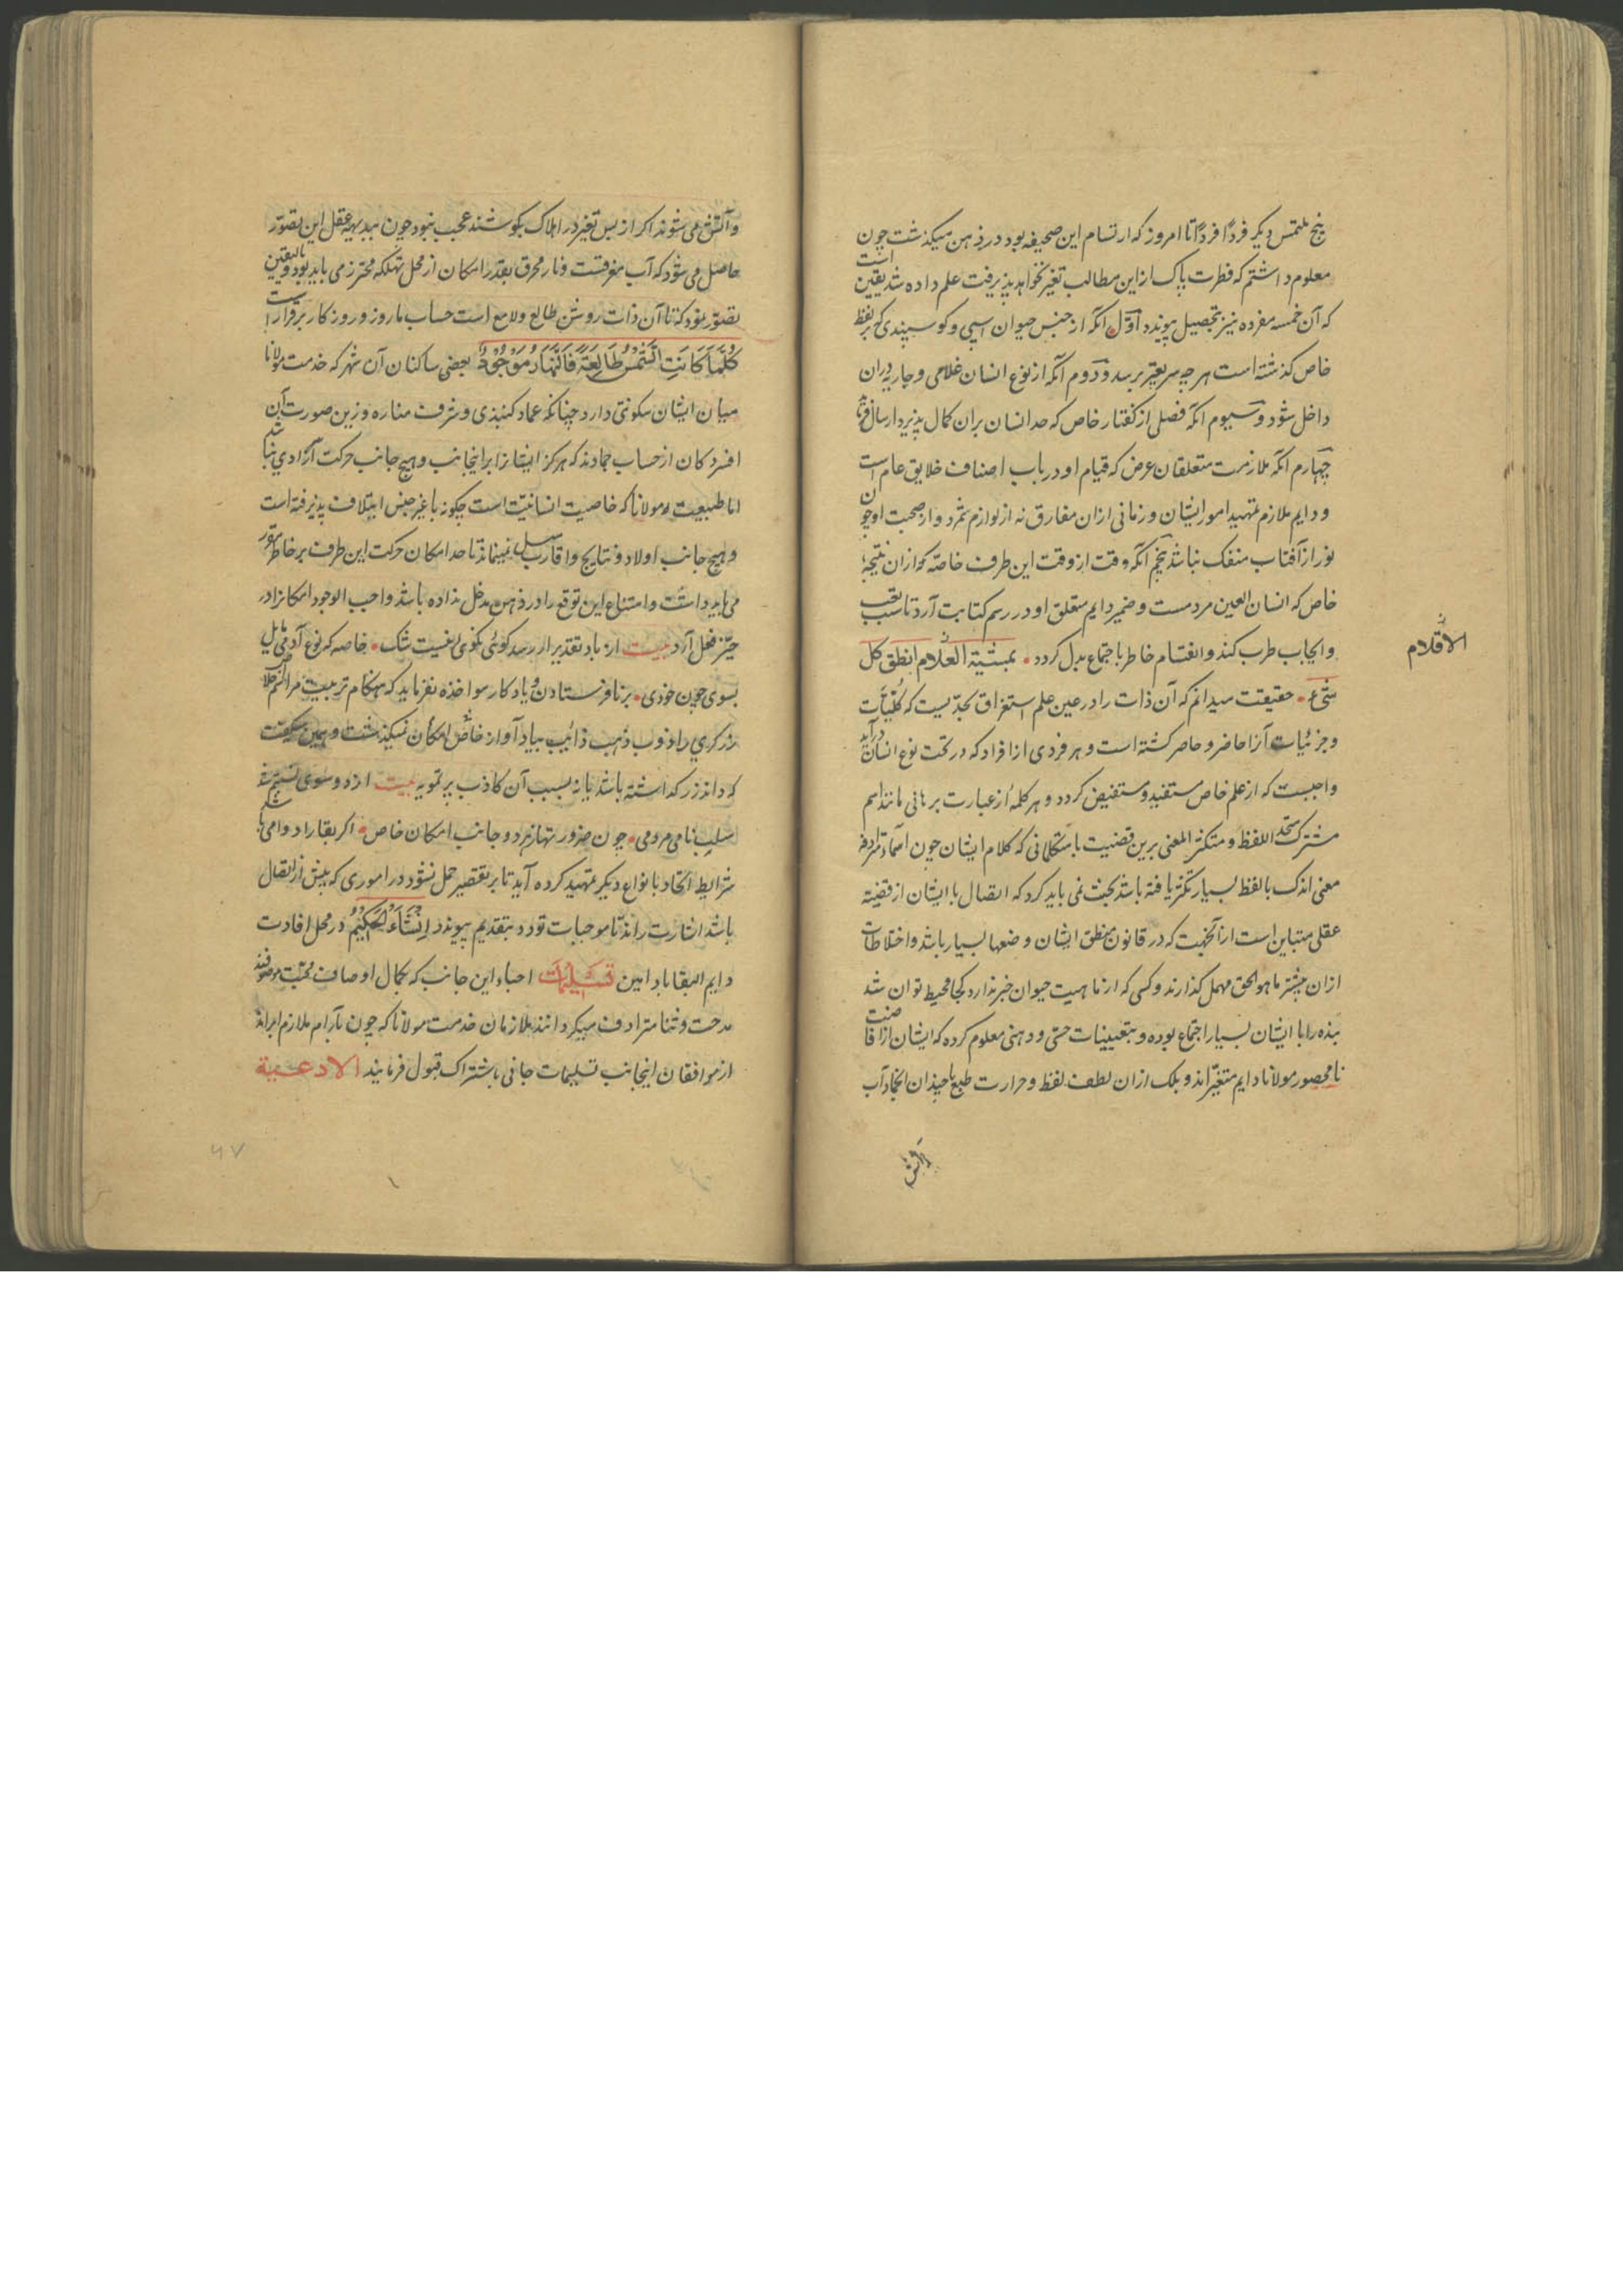 پنج ملتمس دیکر فردًا فردًا تا امروز که ارتسام این صحیفه بود در ذهن میکذشت چون
معلوم داشتم که فطرت پاک از این مطالب تغیر نخواهد پذیرفت علم داده شد یقین است
که آن خمسه مفرده نیز بتحصیل پیوندد اوّل انکه از جنس حیوان اسپی و کوسپندی که بر لفظ
خاص کذشته است هر چه سریعتر برسد و دوم آنکه از نوع انسان غلامی و جاریه در ان
داخل شود و سیوم انکه فصلی از کفتار خاص که حد انسان بران کمال پذیرد ارسال
چهارم انکه ملازمت متعلقان عرض که قیام او در باب اصناف خلایق عام است
و دایم ملازم تمهید امور ایشان و زمانی ازان مفارق نه از لوازم شمرد و از صحبت او چون
نور از آفتاب منفک نباشد پنجم انکه وقت از وقت این طرف خاصه که ازان نتیجهٔ
خاص که انسان العین مردمست و ضمیر دایم متعلق او در رسم کتابت آرد تا سلب تعب
و ایجاب طرب کند و انقسام خاطر باجتماع بدل کردد بمشیّة العلام انطق کل
الاقلام
شیء حقیقت میدانم که آن ذات را در عین علم استغراق بحدّیست که کُلّیّات
و جزئیات آنرا حاضر و حاصر کشته است و هر فردی از افراد که در تحت نوع انسان درآید
واجبست که از علم خاص مستفید و مستفیض کردد و هر کلمهٔ از عبارت برهانی مانند اسم
مشترک متحد اللفظ و متکثر المعنی برین قضیت با متکلمانی که کلام ایشان چون اسماء مترادفه
معنی اندک بالفظ بسیار تکثر یافته باشد بحث نمی باید کرد که اتصال با ایشان از قضیّه
عقلی متباین است از آنجهت که در قانون منطق ایشان وضعها بسیار باشد و اختلاطات
ازان بیشتر ماهو الحق مهمل کذارند و کسی که از ماهیت حیوان خبر ندارد کجا محیط توان شد
بنده را با ایشان بسیار اجتماع بوده و بتعیینات حسّی و ذهنی معلوم کرده که ایشان از افاضت
نامحصور مولانا دایم متغیّراند و بلک ازان لطف لفظ و حرارت طبع با چندان اتحاد آب
و آتش
و آتش می شوند اکر از بس تغیر در اهلاک کوشند عجب نبود چون ببدیههٔ عقل این تصوّر
حاصل می شود که آب مغرقست و نار محرق بقدر امکان از محل تهلکه محترز می باید بود و بالیقین
تصوّر نمود که تا آن ذات روشن طالع و لامع است حساب ما روز و روزکار برقرار است
کُلَّمَا کَانَتِ الشَّمْسُ طَالِعَةً فَالنَّهَارُ مَوْجُوْدٌ بعضی ساکنان آن شهر که خدمت مولانا
میان ایشان سکونتی دارد چنانکه عماد کنبذی و شرف مناره و زین صورت آن
افسردکان از حساب جمادند که هرکز ایشانرا بر اینجانب و هیچ جانب حرکت ارادی نباشد
اما طبیعت مولانا که خاصیت انسانیّت است چکونه با غیر جنس ایتلاف پذیرفته است
و هیچ جانب اولاد و نتایج و اقارب میل نمینماید تا حد امکان حرکت این طرف بر خاطر
می باید داشت و امتناع این توقع را در ذهن مدخل نداده باشد واجب الوجود امکانرا در
حیّز فعل آرد بیت ار باد تقدیر ار رسد کوئی نکوئی نیست شک خاصه که نوع آدمی مایل
بسوی چون خودی بر نافرستادن و یادکار مواخذه نفرماید که هنکام تربیت
زرکری را ذوب ذهب ذائب بیاد آوار خاص امکان نمیکذشت و همین حکمت
که داند زر کداشته باشد یا نه بسبب آن کاذب پر تمویه بیت از دو سوی
سلب نامی مرومی چون ضرور تهازمرد و جانب امکان خاص اکر بقا را دوامی باشد
شرایط اتحاد بانواع دیکر تمهید کرده آید تا بر تقصیر حمل نشود در اموری که پیش از اتصال
باشد اشارت راند تا موجبات تودد بتقدیم پیوندد اِنْشَاءَ الْحَکِیْمُ در محل افادت
دایم البقا باد امین تسلیمات احباء این جانب که بکمال اوصاف محبّت موصوفند
مدحت و ثنا مترادف میکردانند ملازمان خدمت مولانا که چون بآرام ملازم ایراند
از موافقان اینجانب تسلیمات جانی باشتراک قبول فرمایند الادعیة
۶۷